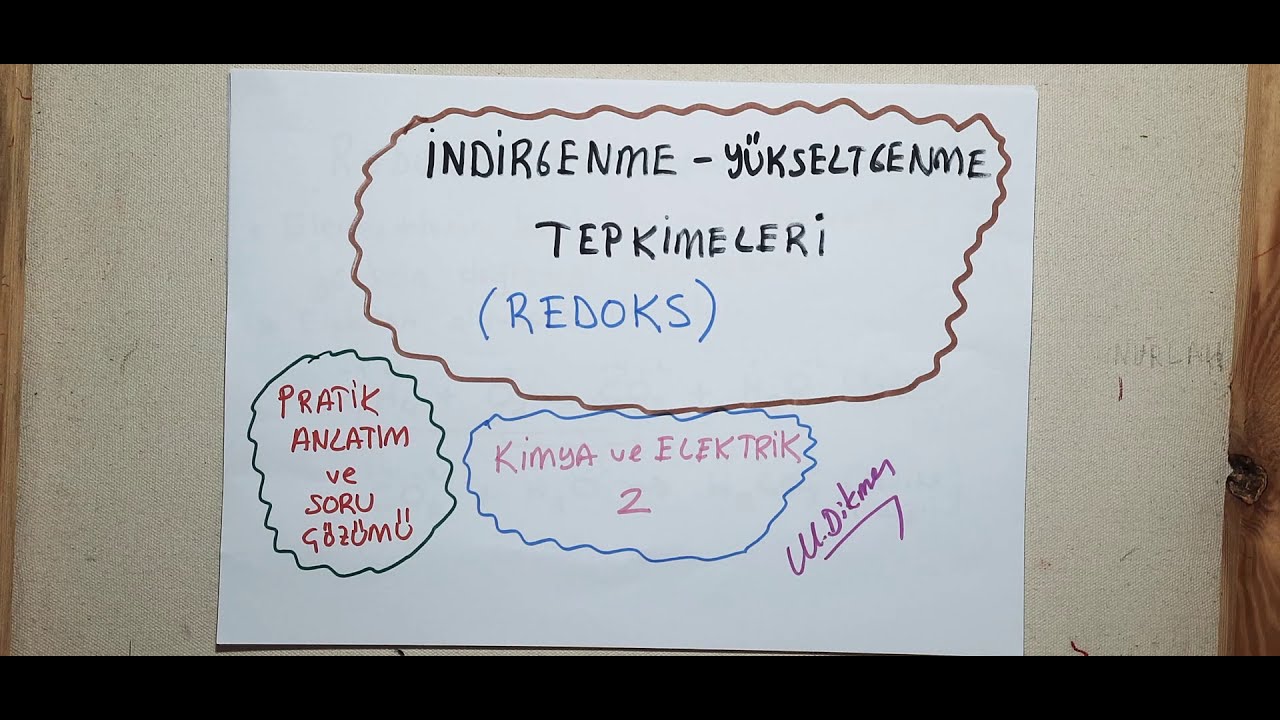 İNDİRGENME - YÜKSELTGENME
TEPKİMELERİ
(REDOKS)
PRATİK
ANLATIM
ve
SORU
ÇÖZÜMÜ
KİMYA ve ELEKTRİK
2
M.Dikmen
NURLAN